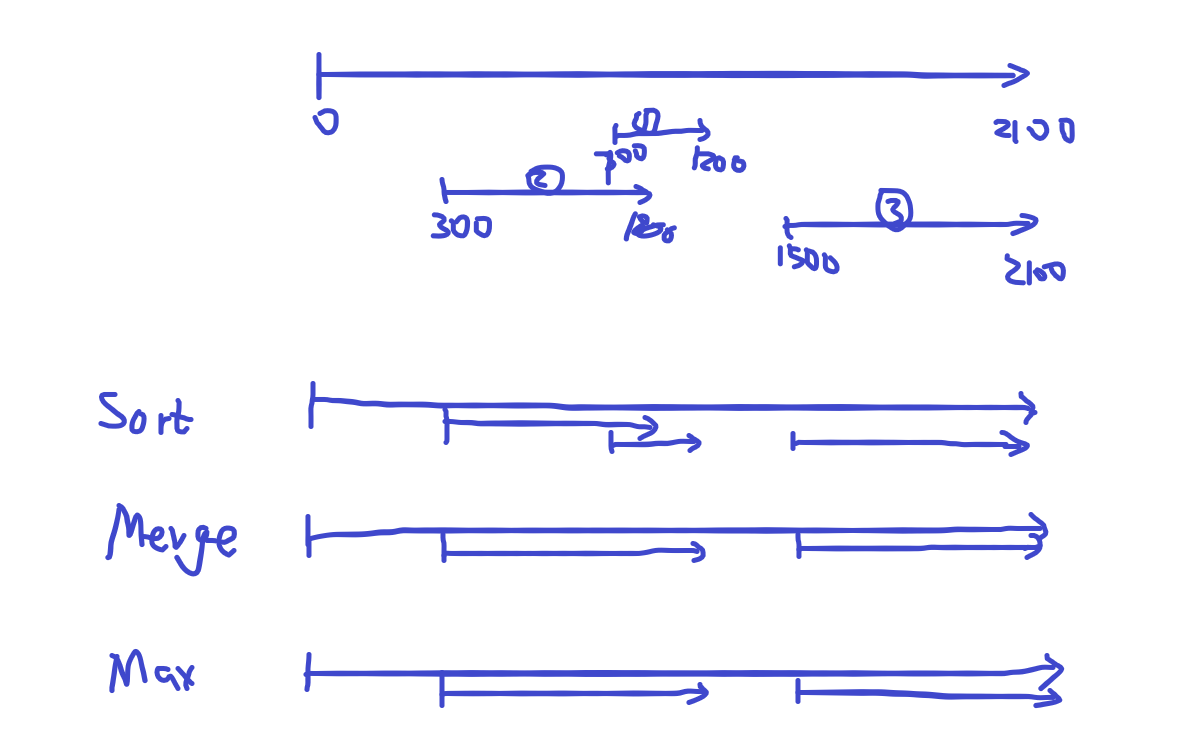 0
①
2100
700
1200
②
300
③
1500
2100
Sort
Merge
Max